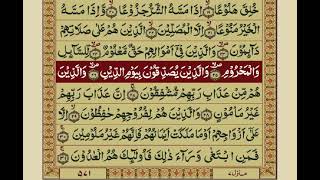 خُلِقَ هَلُوْعًا ۙ اِذَا مَسَّهُ الشَّرُّ جَزُوْعًا ۙ وَّاِذَا مَسَّهُ
الْخَيْرُ مَنُوْعًا ۙ اِلَّا الْمُصَلِّيْنَ ۙ الَّذِيْنَ هُمْ عَلٰى صَلَاتِهِمْ
دَآئِمُوْنَ ۙ وَالَّذِيْنَ فِيْٓ اَمْوَالِهِمْ حَقٌّ مَّعْلُوْمٌ ۙ لِّلسَّآئِلِ
وَالْمَحْرُوْمِ ۙ وَالَّذِيْنَ يُصَدِّقُوْنَ بِيَوْمِ الدِّيْنِ ۙ وَالَّذِيْنَ
هُمْ مِّنْ عَذَابِ رَبِّهِمْ مُّشْفِقُوْنَ ۚ اِنَّ عَذَابَ رَبِّهِمْ
غَيْرُ مَاْمُوْنٍ وَالَّذِيْنَ هُمْ لِفُرُوْجِهِمْ حٰفِظُوْنَ ۙ اِلَّا
عَلٰٓى اَزْوَاجِهِمْ اَوْ مَا مَلَكَتْ اَيْمَانُهُمْ فَاِنَّهُمْ غَيْرُ مَلُوْمِيْنَ ۚ
فَمَنِ ابْتَغٰى وَرَآءَ ذٰلِكَ فَاُولٰٓئِكَ هُمُ الْعٰدُوْنَ ۚ
منزل ٧ ٥٧١